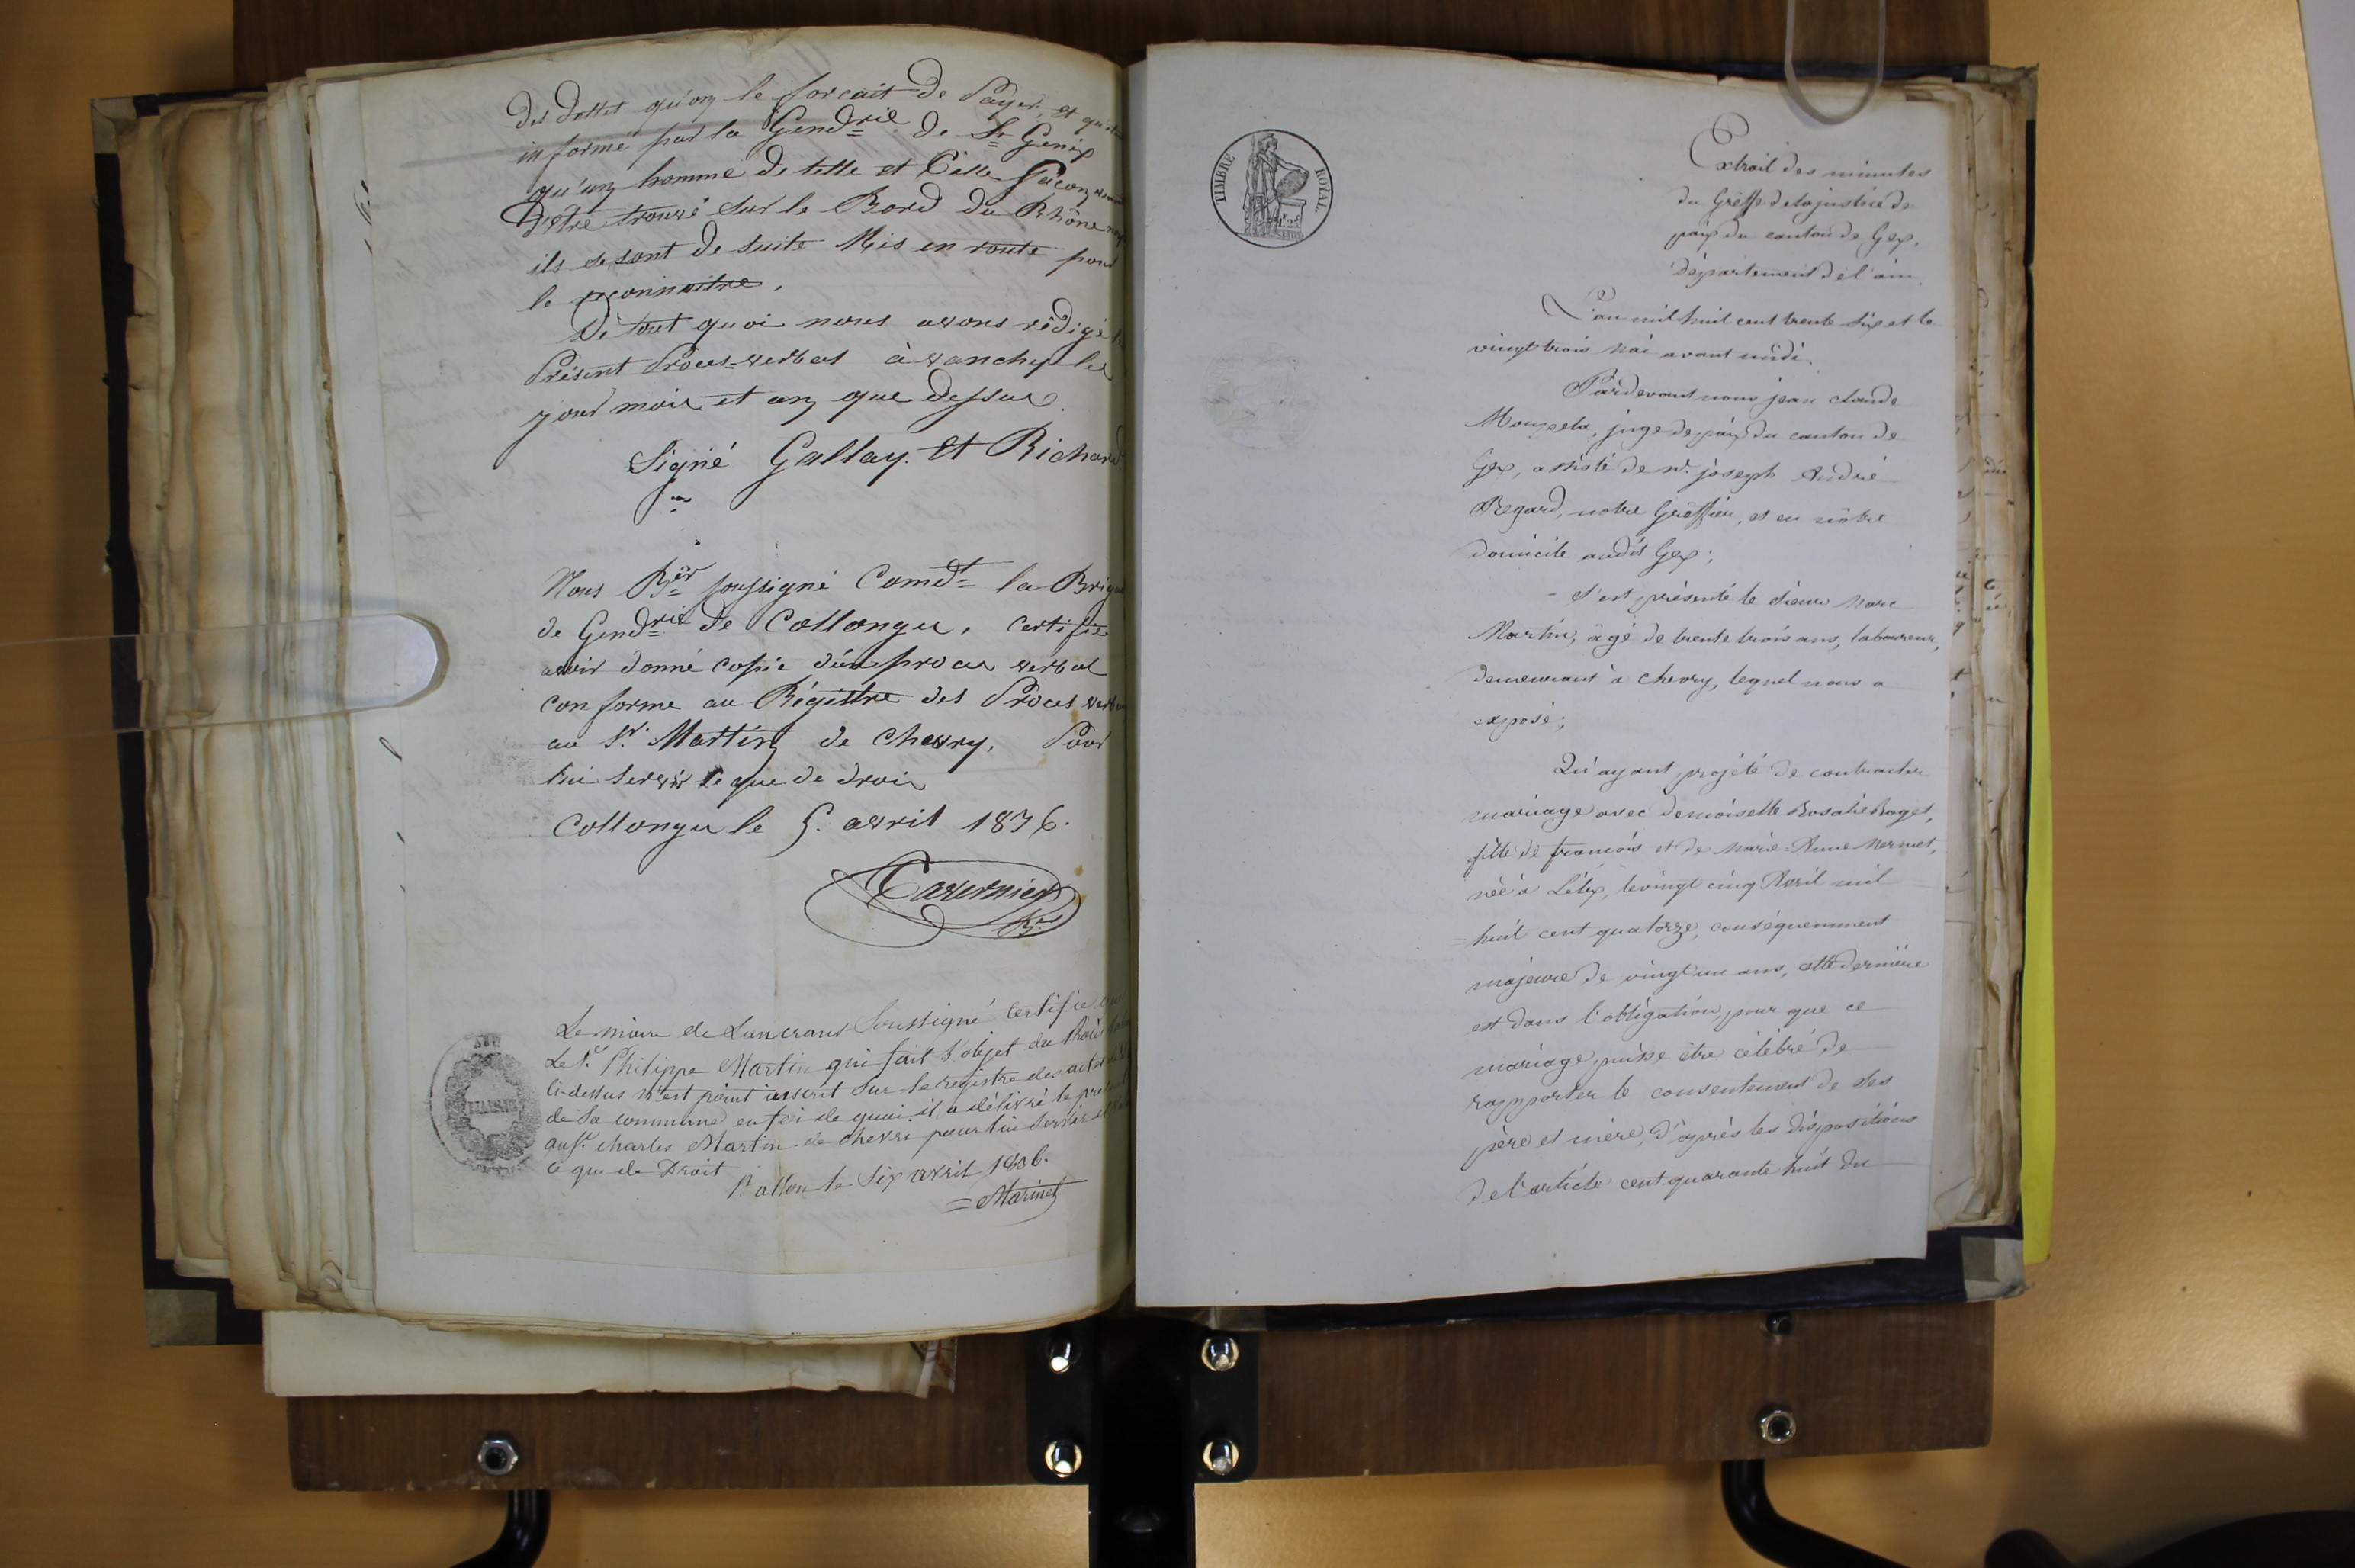 Des dettes qu'on le forcait de Payer, et qu'
informé par la Gend=rie. De St Genix
qu'un homme de telle et telle façon venait
D'être trouvé sur le Bord du Rhône
ils se sont de suite Mis en route pour
le reconnaitre,
De tout quoi nous avons rédigé
Présent Proces=verbal à vanchy les
jour mois et an que dessus.
Signé Gallay. et Richard
Nous Bier soussigné Comdt la Brig
de Gend=rie de Collonges, certifie
avoir donné copie d'un proces verbal
conforme au Régistre des Proces verb
au Sr. Martin de Chevry, Pour
lui servir ce que de droit
Collonges le 5. avril 1836.
Tavernier
Br
Le maire de Lancrans Soussigné certifie que
Le Sr Philippe Martin qui fait l'objet du Procès
Ci-dessus n'est point inscrit sur le registre des actes
de Sa commune en foi de quoi il a délivré le pre
au Sr. charles Martin de chevri pour lui servir
ce que de Droit
Ballon le six avril 1836.
= Marinet
TIMBRE ROYAL
1F 25
Extrait des minutes
du Greffe de la justice de
paix du canton de Gex,
département de l'ain.
L'an mil huit cent trente six et le
vingt trois Mai avant midi.
Pardevant nous jean claude
juge de paix du canton de
Gex, assisté de Me. joseph André
Regard, notre Greffier, et en nôtre
domicile audit Gex;
- s'est présenté le sieur Marc
Martin, âgé de trente trois ans, laboureur,
demeurant à chevry, lequel nous a
exposé;
Qu'ayant projété de contracter
mariage avec demoiselle Rosalie Roget,
fille de francois et de Marie Anne Mermet,
née à Lélex, le vingt cinq Avril mil
huit cent quatorze, conséquemment
majeure de vingt un ans, cette dernière
est dans l'obligation, pour que ce
mariage puisse être célébré de
rapporter le consentement de ses
père et mère, d'après les dispositions
de l'article cent quarante huit du